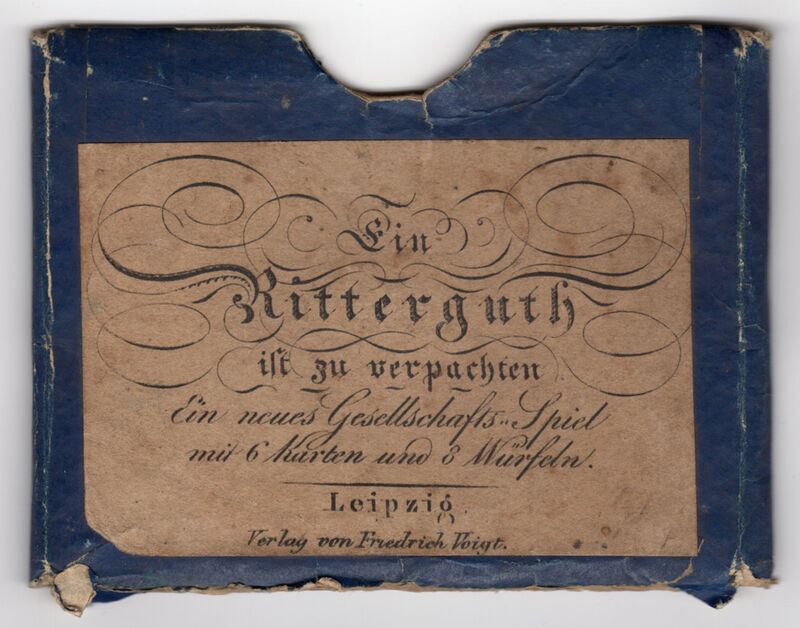 Ein
Ritterguth
iſt zu verpachten
Ein neues Gesellschafts-Spiel
mit 6 Karten und 8 Würfeln.
Leipzig
Verlag von Friedrich Voigt.